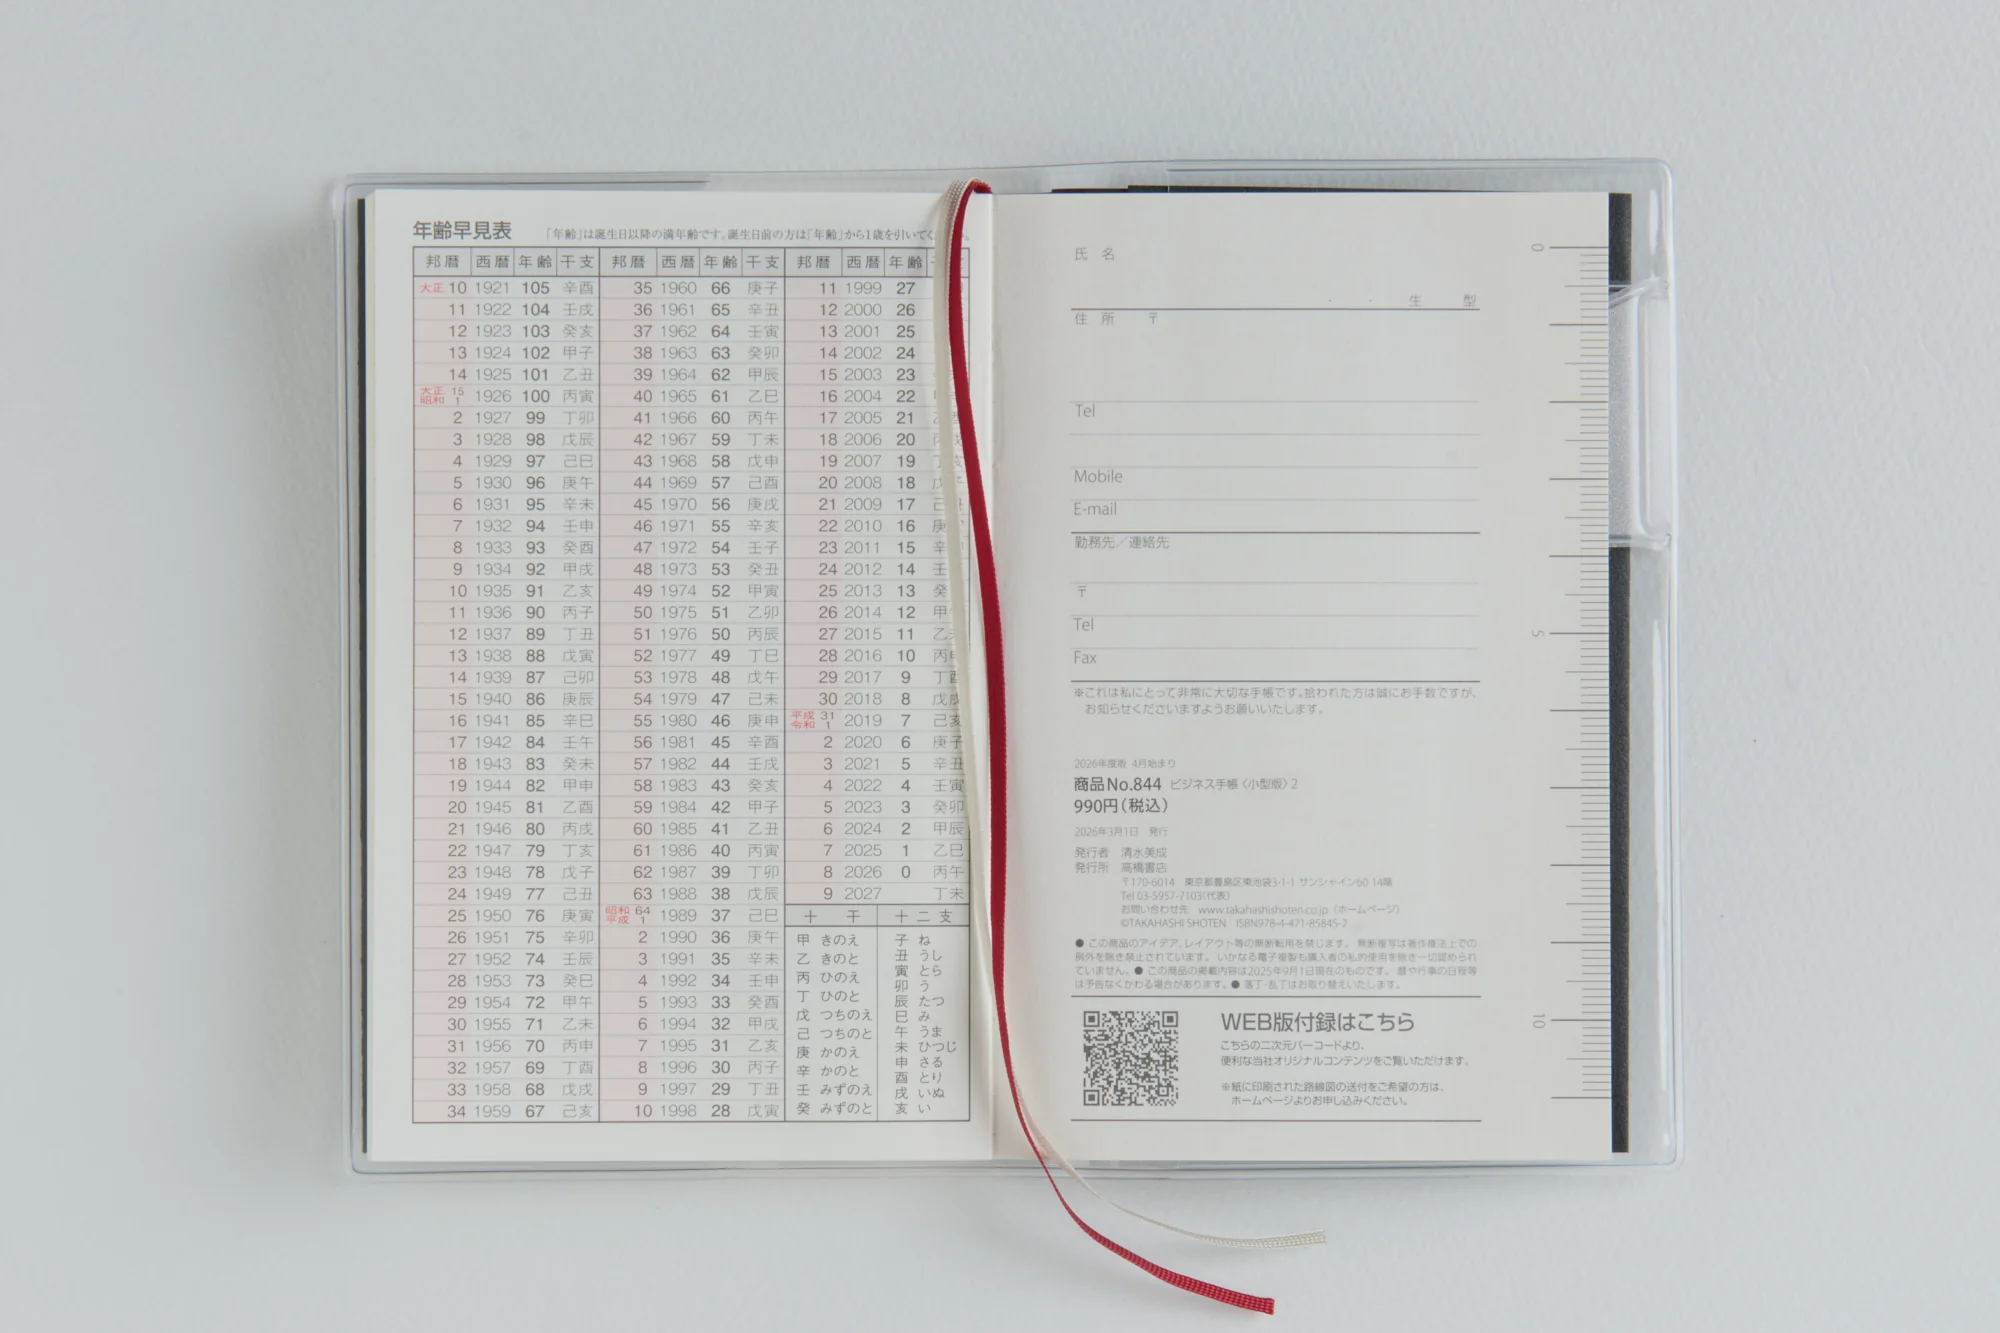 年齢早見表 「年齢」は誕生日以降の満年齢です。誕生日前の方は「年齢」から1歳を引いてく
邦暦 西暦 年齢 干支 邦暦 西暦 年齢 干支 邦暦 西暦 年齢
大正 10 1921 105 辛酉 35 1960 66 庚子 11 1999 27
11 1922 104 壬戌 36 1961 65 辛丑 12 2000 26
12 1923 103 癸亥 37 1962 64 壬寅 13 2001 25
13 1924 102 甲子 38 1963 63 癸卯 14 2002 24
14 1925 101 乙丑 39 1964 62 甲辰 15 2003 23
大正 15 昭和 1 1926 100 丙寅 40 1965 61 乙巳 16 2004 22
2 1927 99 丁卯 41 1966 60 丙午 17 2005 21
3 1928 98 戊辰 42 1967 59 丁未 18 2006 20
4 1929 97 己巳 43 1968 58 戊申 19 2007 19
5 1930 96 庚午 44 1969 57 己酉 20 2008 18
6 1931 95 辛未 45 1970 56 庚戌 21 2009 17
7 1932 94 壬申 46 1971 55 辛亥 22 2010 16 庚
8 1933 93 癸酉 47 1972 54 壬子 23 2011 15 辛
9 1934 92 甲戌 48 1973 53 癸丑 24 2012 14 壬
10 1935 91 乙亥 49 1974 52 甲寅 25 2013 13 癸
11 1936 90 丙子 50 1975 51 乙卯 26 2014 12 甲午
12 1937 89 丁丑 51 1976 50 丙辰 27 2015 11 乙
13 1938 88 戊寅 52 1977 49 丁巳 28 2016 10 丙申
14 1939 87 己卯 53 1978 48 戊午 29 2017 9 丁酉
15 1940 86 庚辰 54 1979 47 己未 30 2018 8 戊戌
16 1941 85 辛巳 55 1980 46 庚申 平成 31 令和 1 2019 7 己亥
17 1942 84 壬午 56 1981 45 辛酉 2 2020 6 庚子
18 1943 83 癸未 57 1982 44 壬戌 3 2021 5 辛丑
19 1944 82 甲申 58 1983 43 癸亥 4 2022 4 壬寅
20 1945 81 乙酉 59 1984 42 甲子 5 2023 3 癸卯
21 1946 80 丙戌 60 1985 41 乙丑 6 2024 2 甲辰
22 1947 79 丁亥 61 1986 40 丙寅 7 2025 1 乙巳
23 1948 78 戊子 62 1987 39 丁卯 8 2026 0 丙午
24 1949 77 己丑 63 1988 38 戊辰 9 2027 丁未
25 1950 76 庚寅 昭和 64 平成 1 1989 37 己巳
26 1951 75 辛卯 2 1990 36 庚午
27 1952 74 壬辰 3 1991 35 辛未
28 1953 73 癸巳 4 1992 34 壬申
29 1954 72 甲午 5 1993 33 癸酉
30 1955 71 乙未 6 1994 32 甲戌
31 1956 70 丙申 7 1995 31 乙亥
32 1957 69 丁酉 8 1996 30 丙子
33 1958 68 戊戌 9 1997 29 丁丑
34 1959 67 己亥 10 1998 28 戊寅
十干
甲 きのえ
乙 きのと
丙 ひのえ
丁 ひのと
戊 つちのえ
己 つちのと
庚 かのえ
辛 かのと
壬 みずのえ
癸 みずのと
十二支
子 ね
丑 うし
寅 とら
卯 う
辰 たつ
巳 み
午 うま
未 ひつじ
申 さる
酉 とり
戌 いぬ
亥 い
氏 名
・ ・ 生 型
住 所 〒
Tel
Mobile
E-mail
勤務先／連絡先
〒
Tel
Fax
※これは私にとって非常に大切な手帳です。拾われた方は誠にお手数ですが、
お知らせくださいますようお願いいたします。
2026年度版 4月始まり
商品No.844 ビジネス手帳〈小型版〉2
990円（税込）
2026年3月1日 発行
発行者 清水美成
発行所 高橋書店
〒170-6014 東京都豊島区東池袋3-1-1 サンシャイン60 14階
Tel 03-5957-7103(代表)
お問い合わせ先 www.takahashishoten.co.jp（ホームページ）
©TAKAHASHI SHOTEN ISBN978-4-471-85845-2
● この商品のアイデア、レイアウト等の無断転用を禁じます。 無断複写は著作権法上での
例外を除き禁止されています。 いかなる電子複製も購入者の私的使用を除き一切認められ
ていません。● この商品の掲載内容は2025年9月1日現在のものです。 暦や行事の日程等
は予告なくかわる場合があります。● 落丁・乱丁はお取り替えいたします。
WEB版付録はこちら
こちらの二次元バーコードより、
便利な当社オリジナルコンテンツをご覧いただけます。
※紙に印刷された路線図の送付をご希望の方は、
ホームページよりお申し込みください。
0
5
10